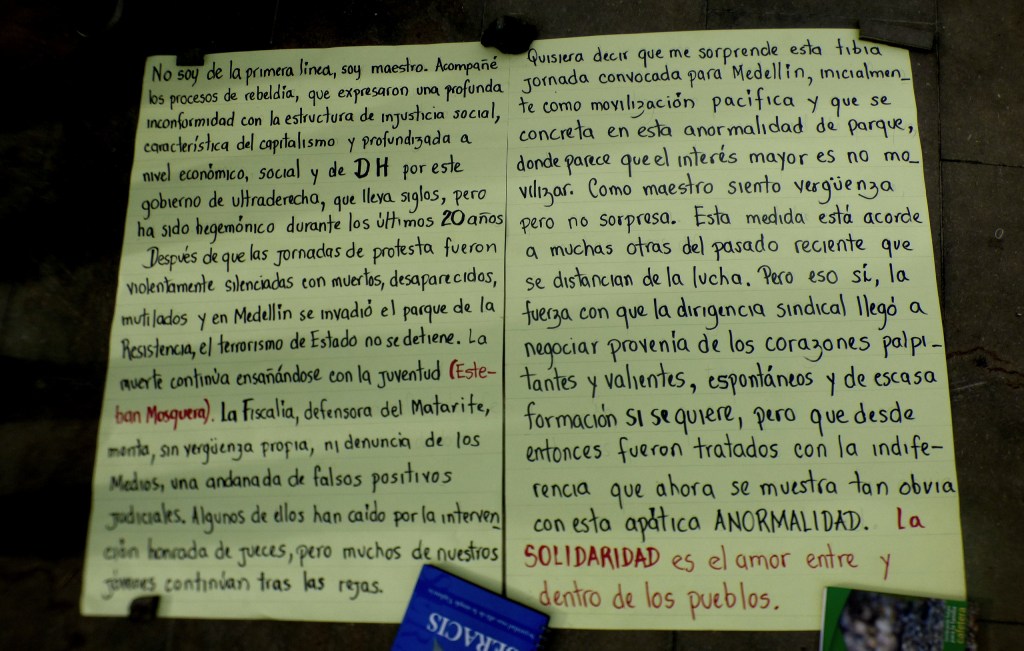 No soy de la primera línea, soy maestro. Acompañé
los procesos de rebeldía, que expresaron una profunda
inconformidad con la estructura de injusticia social,
característica del capitalismo y profundizada a
nivel económico, social y de DH por este
gobierno de ultraderecha, que lleva siglos, pero
ha sido hegemónico durante los últimos 20 años
Después de que las jornadas de protesta fueron
violentamente silenciadas con muertos, desaparecidos,
mutilados y en Medellín se invadió el parque de la
Resistencia, el terrorismo de Estado no se detiene. La
muerte continúa ensañándose con la juventud (Este-
ban Mosquera). La Fiscalía, defensora del Matarife,
monta, sin vergüenza propia, ni denuncia de los
Medios, una andanada de falsos positivos
judiciales. Algunos de ellos han caído por la interven
ción honrada de jueces, pero muchos de nuestros
jóvenes continúan tras las rejas.
Quisiera decir que me sorprende esta tibia
jornada convocada para Medellín, inicialmen_
te como movilización pacífica y que se
concreta en esta anormalidad de parque,
donde parece que el interés mayor es no mo_
vilizar. Como maestro siento vergüenza
pero no sorpresa. Esta medida está acorde
a muchas otras del pasado reciente que
se distancian de la lucha. Pero eso sí, la
fuerza con que la dirigencia sindical llegó a
negociar provenía de los corazones palpi-
tantes y valientes, espontáneos y de escasa
formación si se quiere, pero que desde
entonces fueron tratados con la indife-
rencia que ahora se muestra tan obvia
con esta apática ANORMALIDAD. La
SOLIDARIDAD es el amor entre y
dentro de los pueblos.
cafetera